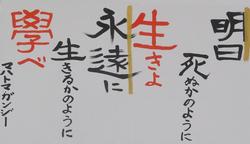 明日
死ぬかのように
生きよ
永遠に
生きるかのように
學べ
マハトマガンジー